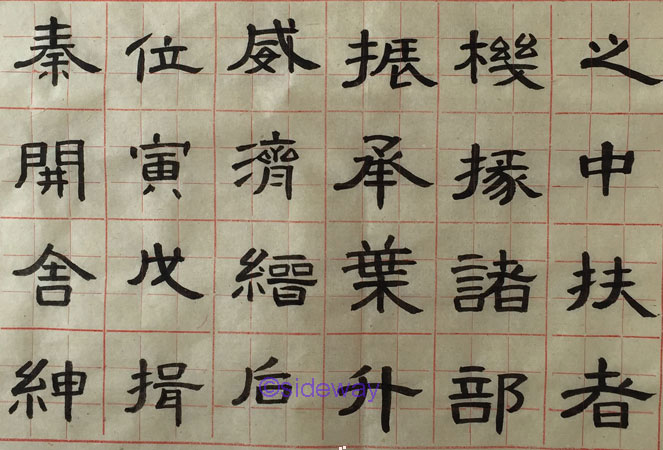 之中扶者
機掾諸部
振承葉外
威濟縉后
位寅戊揖
秦開舍紳
©sideway